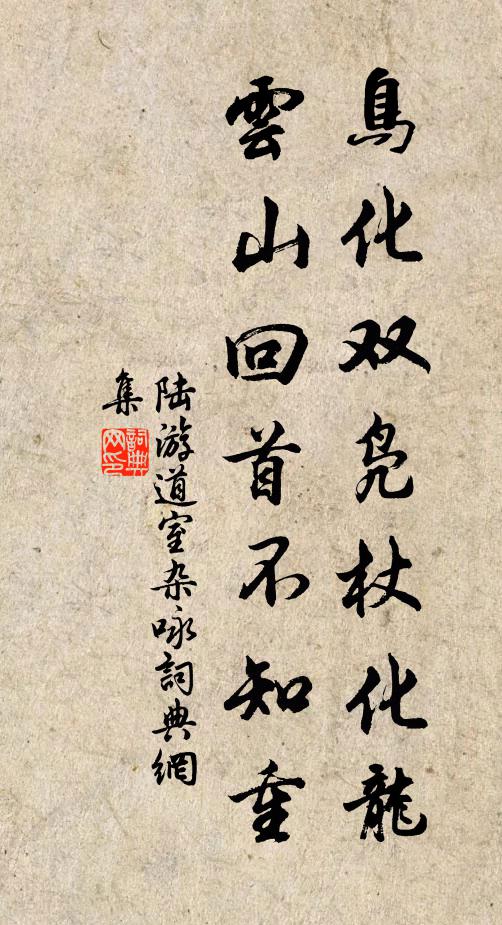 舄化双凫杖化龍
雲山回首不知重
陆游道室杂咏詞典網
集
詞典网印